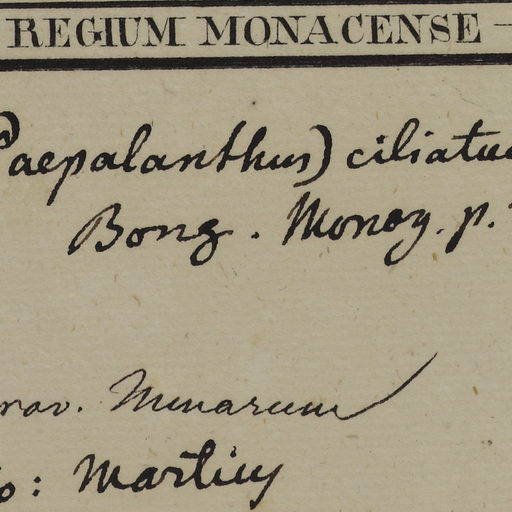 REGIUM MONACENSE
Paepalanthus) ciliatu
Bong. Monog. p.
rov. Minarum
o: Martius